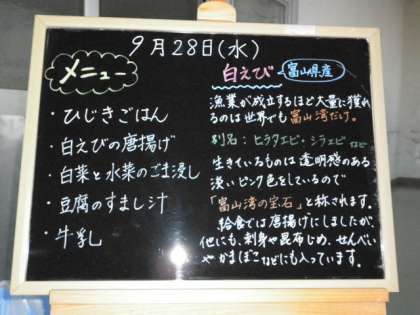 9月28日(水)
メニュー
・ひじきごはん
・白えびの唐揚げ
・白菜と水菜のごま浸し
・豆腐のすまし汁
・牛乳
白えび 富山県産
漁業が成立するほど大量に獲れ
るのは世界でも富山湾だけ。
別名:ヒラタエビ・シラエビ など
生きているものは透明感のある
淡いピンク色をしているので
「富山湾の宝石」と称されます。
給食では唐揚げにしましたが、
他にも、刺身や昆布じめ、せんべい
やかまぼこなどにも入っています。